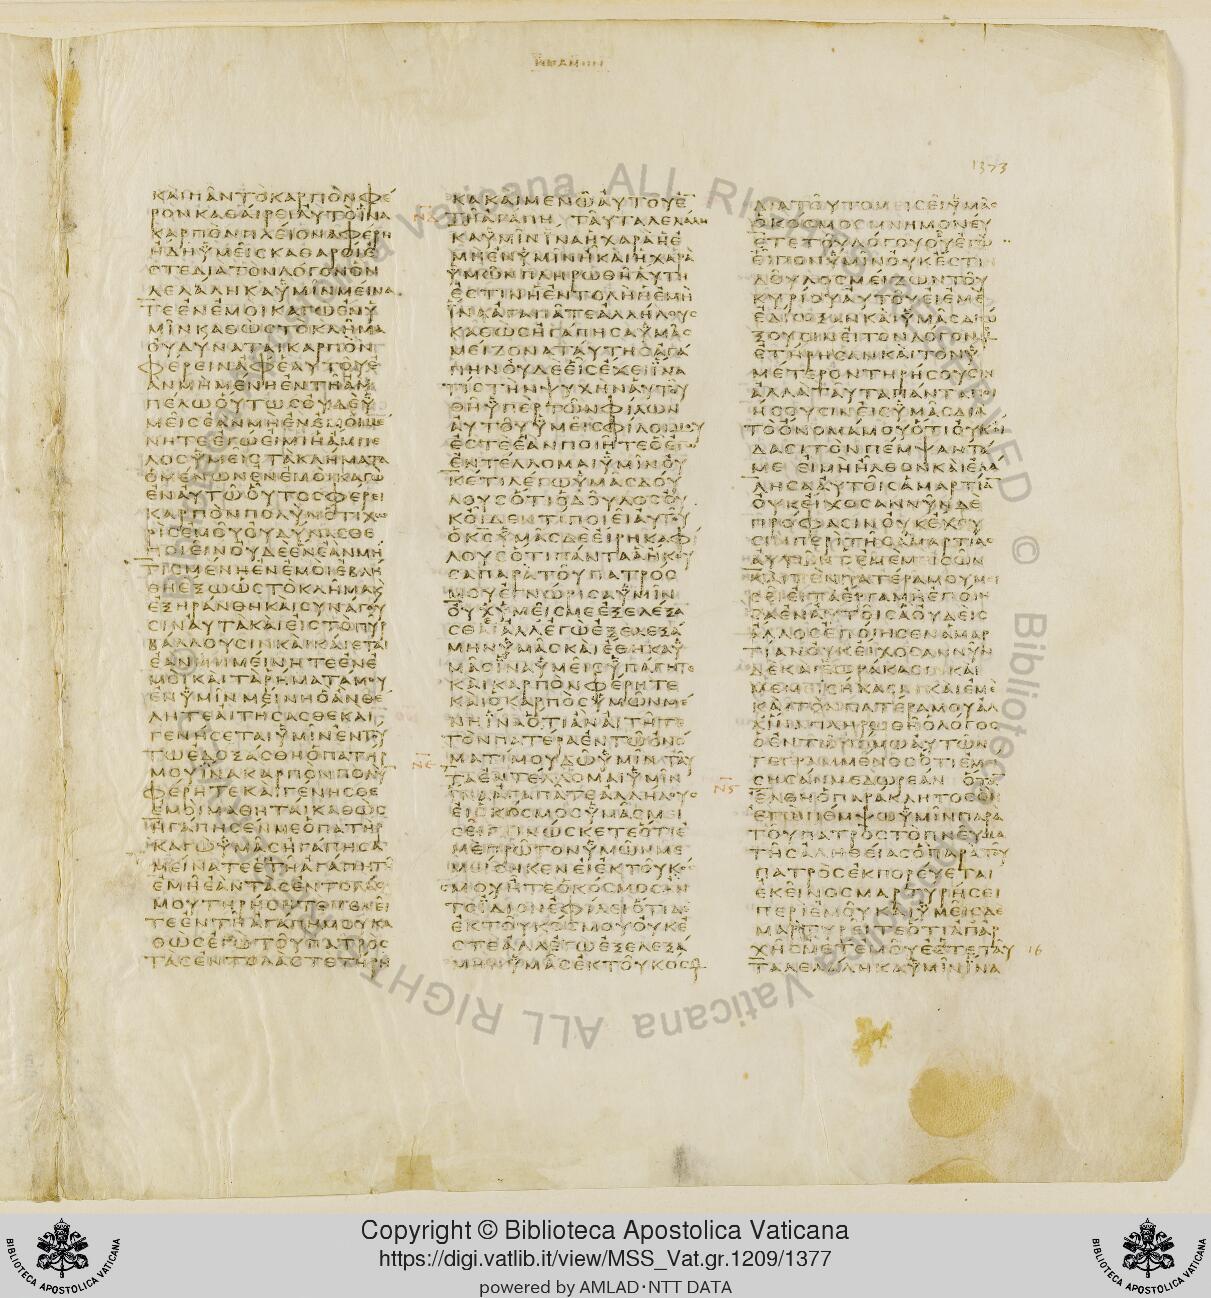 ΙΩΑΝΗΝ
1373
ΚΑΙΠΑΝΤΟΚΑΡΠΟΝΦΕ
ΡΟΝΚΑΘΑΙΡΕΙΑΥΤΟΙΝΑ
ΚΑΡΠΟΝΠΛΕΙΟΝΑΦΕΡΗ
ΗΔΗΥΜΕΙΣΚΑΘΑΡΟΙΕ
ΣΤΕΔΙΑΤΟΝΛΟΓΟΝΟΝ
ΛΕΛΑΛΗΚΑΥΜΙΝΜΕΙΝΑ
ΤΕΕΝΕΜΟΙΚΑΓΩΕΝΥ
ΜΙΝΚΑΘΩΣΤΟΚΛΗΜΑ
ΟΥΔΥΝΑΤΑΙΚΑΡΠΟΝ
ΦΕΡΕΙΝΑΦΕΑΥΤΟΥΕ
ΑΝΜΗΜΕΝΗΕΝΤΗΑΜ
ΠΕΛΩΟΥΤΩΣΟΥΔΕΥ
ΜΕΙΣΕΑΝΜΗΕΝΕΜΟΙΜΕ
ΝΗΤΕΕΓΩΕΙΜΙΗΑΜΠΕ
ΛΟΣΥΜΕΙΣΤΑΚΛΗΜΑΤΑ
ΟΜΕΝΩΝΕΝΕΜΟΙΚΑΓΩ
ΕΝΑΥΤΩΟΥΤΟΣΦΕΡΕΙ
ΚΑΡΠΟΝΠΟΛΥΝΟΤΙΧΩ
ΡΙΣΕΜΟΥΟΥΔΥΝΑΣΘΕ
ΠΟΙΕΙΝΟΥΔΕΕΝΕΑΝΜΗ
ΤΙΣΜΕΝΗΕΝΕΜΟΙΕΒΛΗ
ΘΗΕΞΩΩΣΤΟΚΛΗΜΑΚ
ΕΞΗΡΑΝΘΗΚΑΙΣΥΝΑΓΟΥ
ΣΙΝΑΥΤΑΚΑΙΕΙΣΤΟΠΥΡ
ΒΑΛΛΟΥΣΙΝΚΑΙΚΑΙΕΤΑΙ
ΕΑΝΜΕΙΝΗΤΕΕΝΕ
ΜΟΙΚΑΙΤΑΡΗΜΑΤΑΜΟΥ
ΕΝΥΜΙΝΜΕΙΝΗΟΑΝΘΕ
ΛΗΤΕΑΙΤΗΣΑΣΘΕΚΑΙ
ΓΕΝΗΣΕΤΑΙΥΜΙΝΕΝΤΟΥ
ΤΩΕΔΟΞΑΣΘΗΟΠΑΤΗΡ
ΜΟΥΙΝΑΚΑΡΠΟΝΠΟΛΥ
ΦΕΡΗΤΕΚΑΙΓΕΝΗΣΘΕ
ΕΜΟΙΜΑΘΗΤΑΙΚΑΘΩΣ
ΗΓΑΠΗΣΕΝΜΕΟΠΑΤΗΡ
ΚΑΓΩΥΜΑΣΗΓΑΠΗΣΑ
ΜΕΙΝΑΤΕΕΤΗΑΓΑΠΗΤΗ
ΕΜΗΕΑΝΤΑΣΕΝΤΟΛΑΣ
ΜΟΥΤΗΡΗΣΗΤΕΜΕΝΕΙ
ΤΕΕΝΤΗΑΓΑΠΗΜΟΥΚΑ
ΘΩΣΕΓΩΤΟΥΠΑΤΡΟΣ
ΤΑΣΕΝΤΟΛΑΣΤΕΤΗΡΗ
ΚΑΚΑΙΜΕΝΩΑΥΤΟΥΕ
ΤΗΑΓΑΠΗΤΑΥΤΑΛΕΛΑΛΗ
ΚΑΥΜΙΝΙΝΑΗΧΑΡΑΗΕ
ΜΗΕΝΥΜΙΝΗΚΑΙΗΧΑΡΑ
ΥΜΩΝΠΛΗΡΩΘΗΑΥΤΗ
ΕΣΤΙΝΗΕΝΤΟΛΗΗΕΜΗ
ΙΝΑΑΓΑΠΑΤΕΑΛΛΗΛΟΥΣ
ΚΑΘΩΣΗΓΑΠΗΣΑΥΜΑΣ
ΜΕΙΖΟΝΑΤΑΥΤΗΣΑΓΑ
ΠΗΝΟΥΔΕΙΣΕΧΕΙΙΝΑ
ΤΙΣΤΗΝΨΥΧΗΝΑΥΤΟΥ
ΘΗΥΠΕΡΤΩΝΦΙΛΩΝ
ΑΥΤΟΥΥΜΕΙΣΦΙΛΟΙΜΟΥ
ΕΣΤΕΕΑΝΠΟΙΗΤΕΟΕΓΩ
ΕΝΤΕΛΛΟΜΑΙΥΜΙΝΟΥ
ΚΕΤΙΛΕΓΩΥΜΑΣΔΟΥ
ΛΟΥΣΟΤΙΟΔΟΥΛΟΣΟΥ
ΚΟΙΔΕΝΤΙΠΟΙΕΙΑΥΤΟΥ
ΟΚΣΥΜΑΣΔΕΕΙΡΗΚΑΦΙ
ΛΟΥΣΟΤΙΠΑΝΤΑΑΗΚΟΥ
ΣΑΠΑΡΑΤΟΥΠΑΤΡΟΣ
ΜΟΥΕΓΝΩΡΙΣΑΥΜΙΝ
ΟΥΧΥΜΕΙΣΜΕΕΞΕΛΕΞΑ
ΣΘΕΑΛΛΕΓΩΕΞΕΛΕΞΑ
ΜΗΝΥΜΑΣΚΑΙΕΘΗΚΑΥ
ΜΑΣΙΝΑΥΜΕΙΣΥΠΑΓΗΤΕ
ΚΑΙΚΑΡΠΟΝΦΕΡΗΤΕ
ΚΑΙΟΚΑΡΠΟΣΥΜΩΝΜΕ
ΝΗΙΝΑΟΤΙΑΝΑΙΤΗΤΕ
ΤΟΝΠΑΤΕΡΑΕΝΤΩΟΝΟ
ΜΑΤΙΜΟΥΔΩΥΜΙΝΤΑΥ
ΤΑΕΝΤΕΛΛΟΜΑΙΥΜΙΝ
ΙΝΑΑΓΑΠΑΤΕΑΛΛΗΛΟΥΣ
ΕΙΟΚΟΣΜΟΣΥΜΑΣΜΕΙ
ΣΕΙΓΙΝΩΣΚΕΤΕΟΤΙΕ
ΜΕΠΡΩΤΟΝΥΜΩΝΜΕ
ΜΕΙΣΗΚΕΝΕΙΕΚΤΟΥΚΟ
ΣΜΟΥΗΤΕΟΚΟΣΜΟΣΑΝ
ΤΟΙΔΙΟΝΕΦΙΛΕΙΟΤΙΔΕ
ΕΚΤΟΥΚΟΣΜΟΥΟΥΚΕ
ΣΤΕΑΛΛΕΓΩΕΞΕΛΕΞΑ
ΜΗΝΥΜΑΣΕΚΤΟΥΚΟΣΜ
ΔΙΑΤΟΥΤΟΜΕΙΣΕΙΥΜΑΣ
ΟΚΟΣΜΟΣΜΝΗΜΟΝΕΥ
ΕΤΕΤΟΥΛΟΓΟΥΟΥΕΓΩ
ΕΙΠΟΝΥΜΙΝΟΥΚΕΣΤΙ
ΔΟΥΛΟΣΜΕΙΖΩΝΤΟΥ
ΚΥΡΙΟΥΑΥΤΟΥΕΙΕΜΕ
ΕΔΙΩΞΑΝΚΑΙΥΜΑΣΔΙΩ
ΞΟΥΣΙΝΕΙΤΟΝΛΟΓΟΝ
ΕΤΗΡΗΣΑΝΚΑΙΤΟΝΥ
ΜΕΤΕΡΟΝΤΗΡΗΣΟΥΣΙΝ
ΑΛΛΑΤΑΥΤΑΠΑΝΤΑΠΟΙ
ΗΣΟΥΣΙΝΕΙΣΥΜΑΣΔΙΑ
ΤΟΟΝΟΜΑΜΟΥΟΤΙΟΥΚΟΙ
ΔΑΣΙΤΟΝΠΕΜΨΑΝΤΑ
ΜΕΕΙΜΗΗΛΘΟΝΚΑΙΕΛΑ
ΛΗΣΑΑΥΤΟΙΣΑΜΑΡΤΙΑ
ΟΥΚΕΙΧΟΣΑΝΝΥΝΔΕ
ΠΡΟΦΑΣΙΝΟΥΚΕΧΟΥ
ΣΙΠΕΡΙΤΗΣΑΜΑΡΤΙΑΣ
ΑΥΤΩΝΟΕΜΕΜΕΙΣΩΝ
ΚΑΙΤΟΝΠΑΤΕΡΑΜΟΥΜΕΙ
ΣΕΙΕΙΤΑΕΡΓΑΜΗΕΠΟΙΗ
ΣΑΕΝΑΥΤΟΙΣΑΟΥΔΕΙΣ
ΑΛΛΟΣΕΠΟΙΗΣΕΝΑΜΑΡ
ΤΙΑΝΟΥΚΕΙΧΟΣΑΝΝΥΝ
ΔΕΚΑΙΕΩΡΑΚΑΣΙΝΚΑΙ
ΜΕΜΙΣΗΚΑΣΙΝΚΑΙΕΜΕ
ΚΑΙΤΟΝΠΑΤΕΡΑΜΟΥΑΛ
ΛΙΝΑΠΛΗΡΩΘΗΟΛΟΓΟΣ
ΟΕΝΤΩΝΟΜΩΑΥΤΩΝ
ΓΕΓΡΑΜΜΕΝΟΣΟΤΙΕΜΙ
ΣΗΣΑΝΜΕΔΩΡΕΑΝΟΤΑ
ΕΛΘΗΟΠΑΡΑΚΛΗΤΟΣΟΝ
ΕΓΩΠΕΜΨΩΥΜΙΝΠΑΡΑ
ΤΟΥΠΑΤΡΟΣΤΟΠΝΕΥΜΑ
ΤΗΣΑΛΗΘΕΙΑΣΟΠΑΡΑΤΟΥ
ΠΑΤΡΟΣΕΚΠΟΡΕΥΕΤΑΙ
ΕΚΕΙΝΟΣΜΑΡΤΥΡΗΣΕΙ
ΠΕΡΙΕΜΟΥΚΑΙΥΜΕΙΣΔΕ
ΜΑΡΤΥΡΕΙΤΕΟΤΙΑΠΑΡ
ΧΗΣΜΕΤΕΜΟΥΕΣΤΕΤΑΥ
ΤΑΛΕΛΑΛΗΚΑΥΜΙΝΙΝΑ
16
Copyright © Biblioteca Apostolica Vaticana
https://digi.vatlib.it/view/MSS_Vat.gr.1209/1377
powered by AMLAD·NTT DATA
BIBLIOTECA APOSTOLICA VATICANA
BIBLIOTECA APOSTOLICA VATICANA